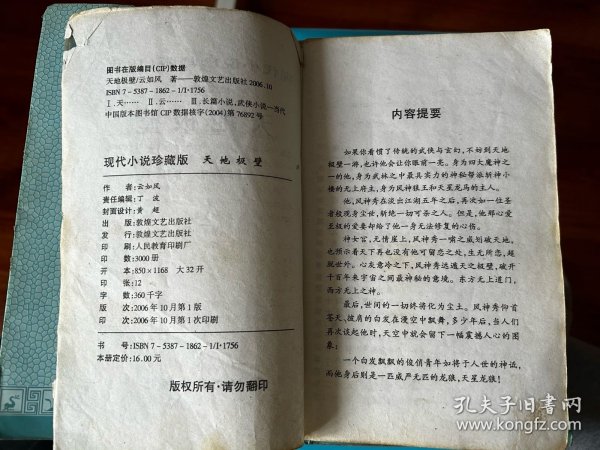 图书在版编目(CIP)数据
天地极壁/云如风 著——敦煌文艺出版社2006.10
ISBN 7-5387-1862-1/I·1756
Ⅰ.天…… Ⅱ.云…… Ⅲ.长篇小说,武侠小说—当代
中国版本图书馆CIP数据核字(2004)第76892号
现代小说珍藏版 天地极壁
作 者:云如风
责任编辑:丁 波
封面设计:黄 超
出 版:敦煌文艺出版社
发 行:敦煌文艺出版社
印 刷:人民教育印刷厂
印 数:3000册
开 本:850×1168 大32开
印 张:12
字 数:360千字
版 次:2006年10月第1版
印 次:2006年10月第1次印刷
书 号:ISBN 7-5387-1862-1/I·1756
本册定价:16.00元
版权所有·请勿翻印
内容提要
如果你看惯了传统的武侠与玄幻,不妨到天地
极壁一游,也许他会让你眼前一亮。身为四大魔神之
一的他,身为武林之中最具实力的神秘帮派斩神小
楼的无上府主,身为风神狼王和天星龙马的主人。
他,风神秀在淡出江湖五年之后,再次如一位圣
者般现身尘世,斩绝一切可杀之人。但是,他那心爱
至极的爱妻却给了他一身无法修复的心伤。
神女宫,无情崖上,风神秀一啸之威划破天地,
也预示着天下再也没有他可留恋之处,生无所恋,超
脱世外。心灰意冷之下,风神秀远遁天之极壁,破开
千百年来宇宙之间最神秘的意境。东方无上道门,
西方无上之神。
最后,世间的一切终将化为尘土。风神秀仰首
苍天、披肩的白发在漫空中飘舞,多少年后,当人们
再次谈起他时,天空中就会留下一幅震撼人心的图
象:
一个白发飘飘的俊俏青年如将于人世的神话,
而他身后则是一匹威严无匹的龙狼,天星龙狼!
孔夫子旧书网
www.kongfz.com